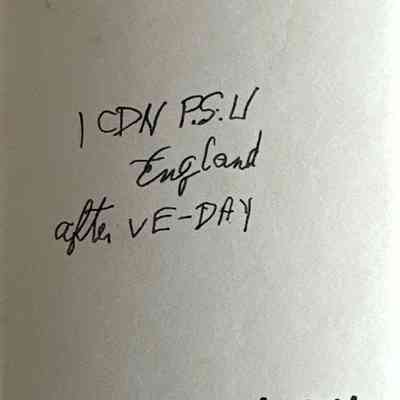 1 CDN P.S.U
England
after VE-DAY